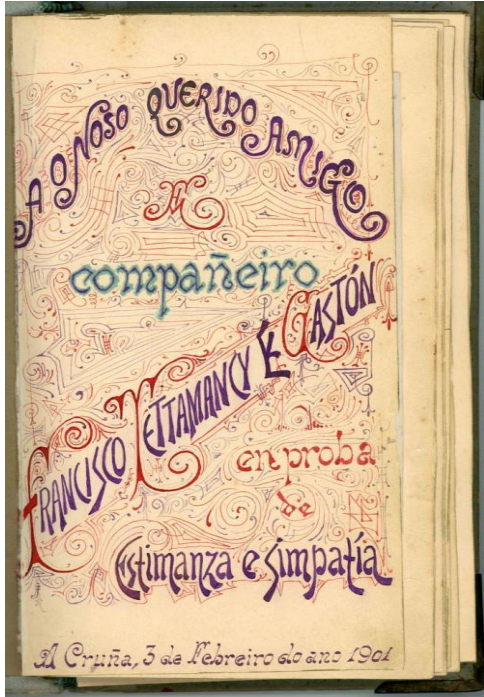 A O NOSO QUERIDO AMIGO
compañeiro
FRANCISCO TETTAMANCY É GASTÓN
en proba
de
Estimanza e Simpatía
A Cruña, 3 de Febreiro do ano 1901